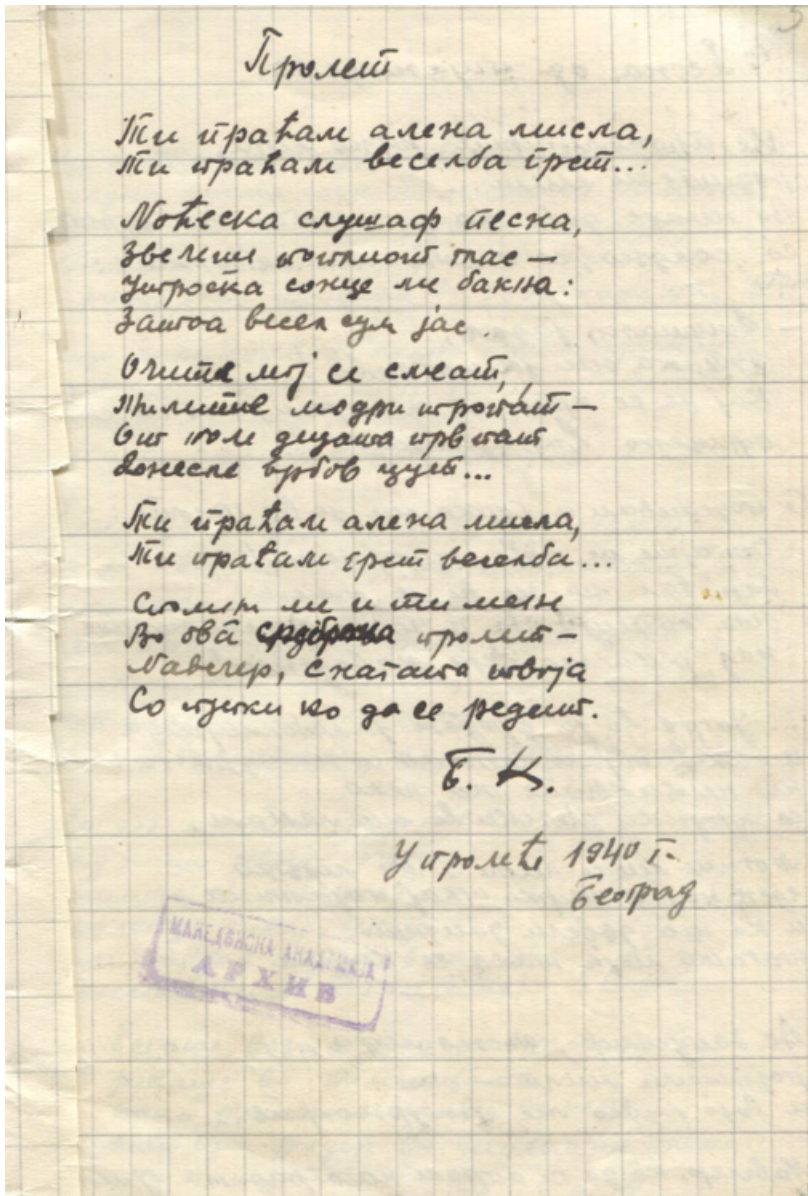 Пролет
Ти праћам алена мисла,
Ти праћам веселба грст...
Ноћеска слушаф песна,
Звечеше топлиот глас —
Утроска сонце ме бакна:
Затоа весел сум јас.
Очите мој се смеат,
модри тротат —
От поле децата првпат
донесле врбов цут...
Ти праћам алена мисла,
Ти праћам грст веселба...
Спомен ме и ти мене
Во ова пролет —
Навечер, снагата твоја
Со цутки ко да се редеит.
Б. К.
У пролеће 1940 г.
Београд
МАКЕДОНСКА АКАДЕМИЈА
АРХИВ